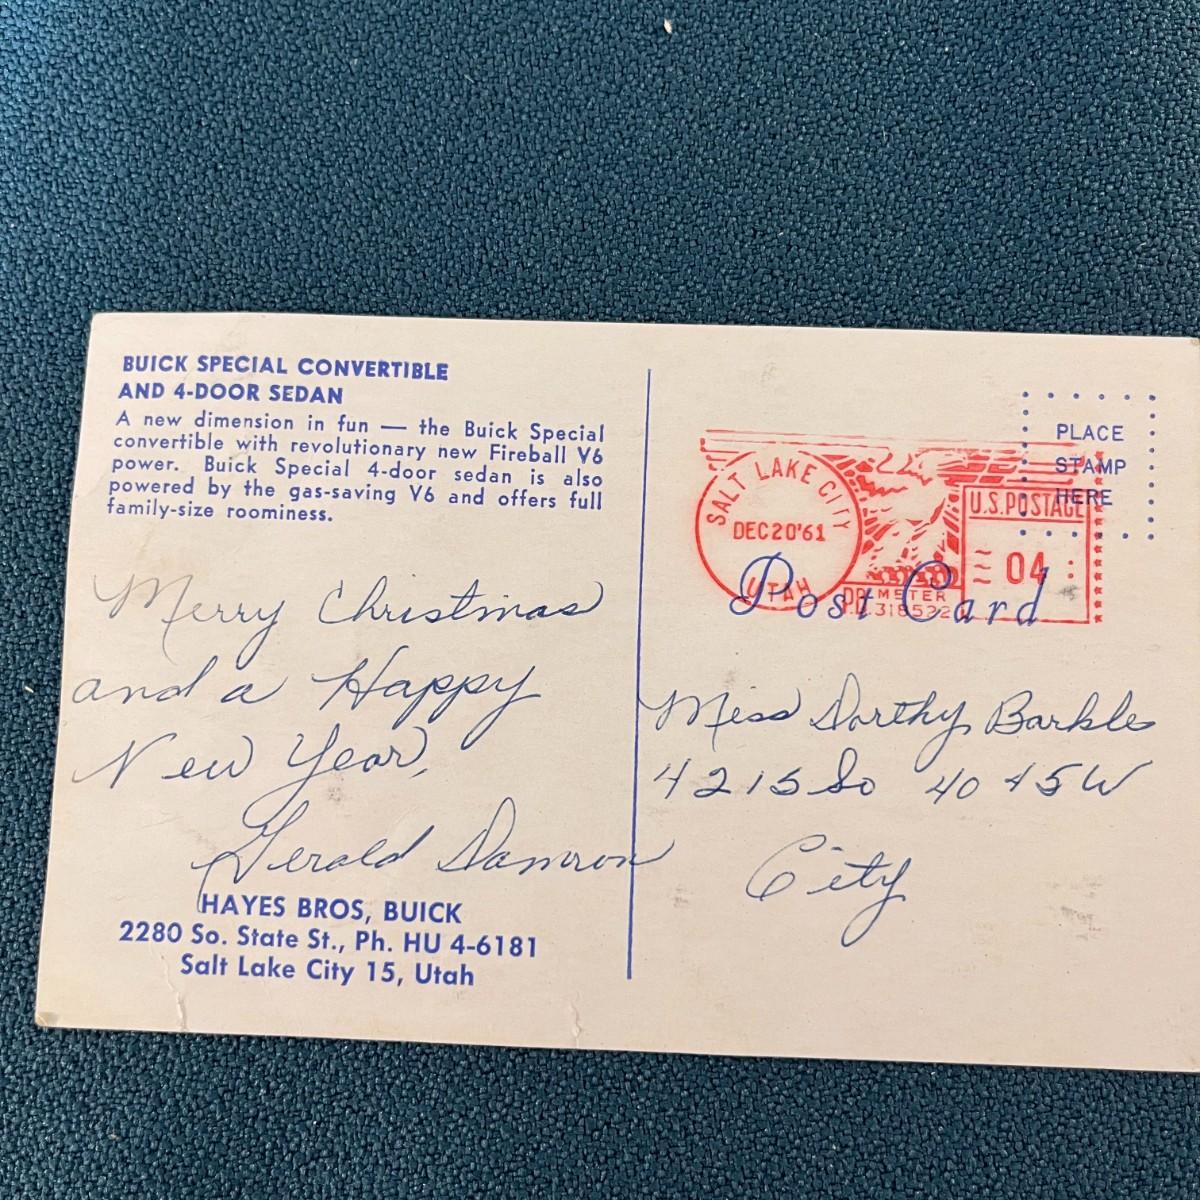 BUICK SPECIAL CONVERTIBLE
AND 4-DOOR SEDAN
A new dimension in fun — the Buick Special
convertible with revolutionary new Fireball V6
power. Buick Special 4-door sedan is also
powered by the gas-saving V6 and offers full
family-size roominess.
Merry Christmas
and a Happy
New Year,
Gerald Damron
HAYES BROS, BUICK
2280 So. State St., Ph. HU 4-6181
Salt Lake City 15, Utah
PLACE
STAMP
HERE
SALT LAKE CITY
DEC 20 '61
UTAH
U.S. POSTAGE
04
METER
318522
Post Card
Miss Dorthy Barkle
4215 So 4045 W
City